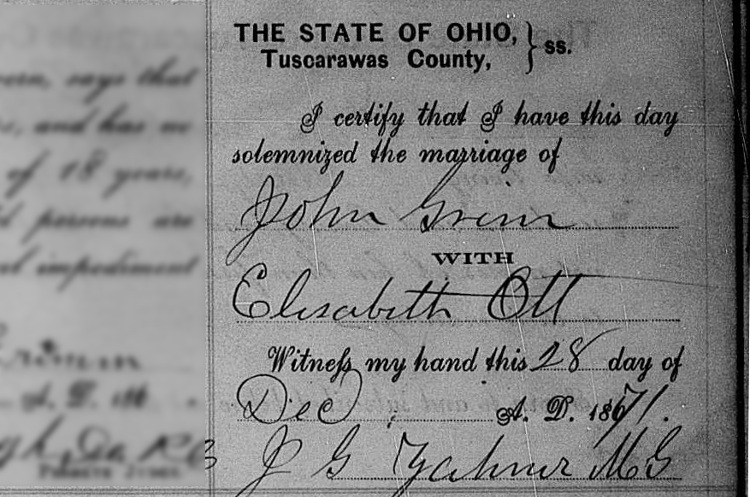 THE STATE OF OHIO, } ss.
Tuscarawas County,
I certify that I have this day
solemnized the marriage of
John Grim
WITH
Elisabeth Ott
Witness my hand this 28 day of
Dec A. D. 1871.
J G MG
says that
and has no
of 18 years,
persons are
impediment
A. D. 186